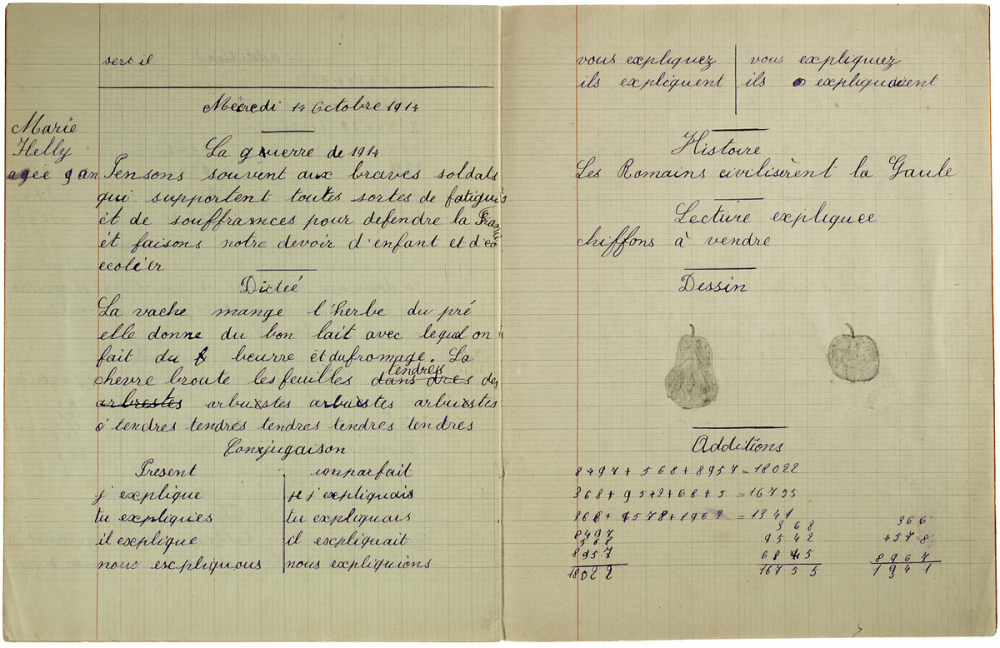 sert il
Mecredi 14 Octobre 1914
Marie
Helly
agee 9 an
La guerre de 1914
Pensons souvent aux braves soldats
qui supportent toutes sortes de fatigues
et de souffrances pour defendre la France
ét faisons notre devoir d'enfant et d'éc
ecolier
Dictéé
La vache mange l'herbe du pré
elle donne du bon lait avec lequel on
fait du beurre ét du fromage. La
tendres
chevre broute les feuilles dans dres des
arbrestes arbustes arbustes arbustes
tendres tendres tendres tendres tendres
Conjugaison
Present imparfait
j'explique je j'expliquais
tu expliques tu expliquais
il explique il expliquait
nous expliquons nous expliquions
vous expliquez vous expliquiez
ils expliquent ils expliquaient
Histoire
Les Romains civilisèrent la Gaule
Lecture expliquee
chiffons à vendre
Dessin
Additions
8497 + 568 + 8957 = 18022
368 + 95+2+68+5 = 16755
368 + 4578 + 1967 = 1341
8497 368 366
568 9542 4578
8957 6845 8967
18022 16755 1941